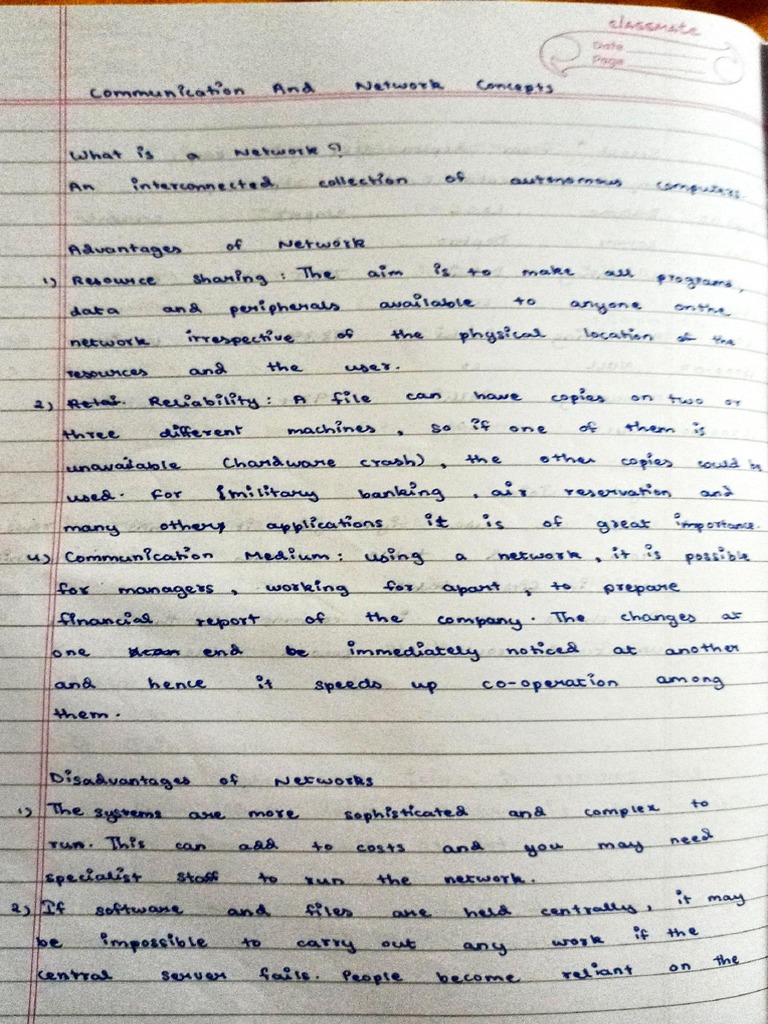 classmate
Date
Page
Communication And Network Concepts
What is a Network?
An interconnected collection of autonomous computers.
Advantages of Network
1) Resource sharing: The aim is to make all programs,
data and peripherals available to anyone onthe
network irrespective of the physical location of the
resources and the user.
2) Reliability: A file can have copies on two or
three different machines, so if one of them is
unavailable (hardware crash), the other copies could be
used. For military banking, air reservation and
many other applications it is of great importance.
4) Communication Medium: using a network, it is possible
for managers, working for apart, to prepare
financial report of the company. The changes at
one end be immediately noticed at another
and hence it speeds up co-operation among
them.
Disadvantages of Networks
1) The systems are more sophisticated and complex to
run. This can add to costs and you may need
specialist staff to run the network.
2) If software and files are held centrally, it may
be impossible to carry out any work if the
central server fails. People become reliant on the